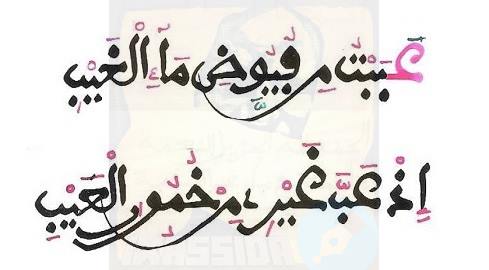 عَبَبْتُ مِن فُيُوضِ مَآءِ الْغَيْبِ
إِذْ عَبَّ غَيْرِي مِنْ خُمُورِ الْعَيْبِ